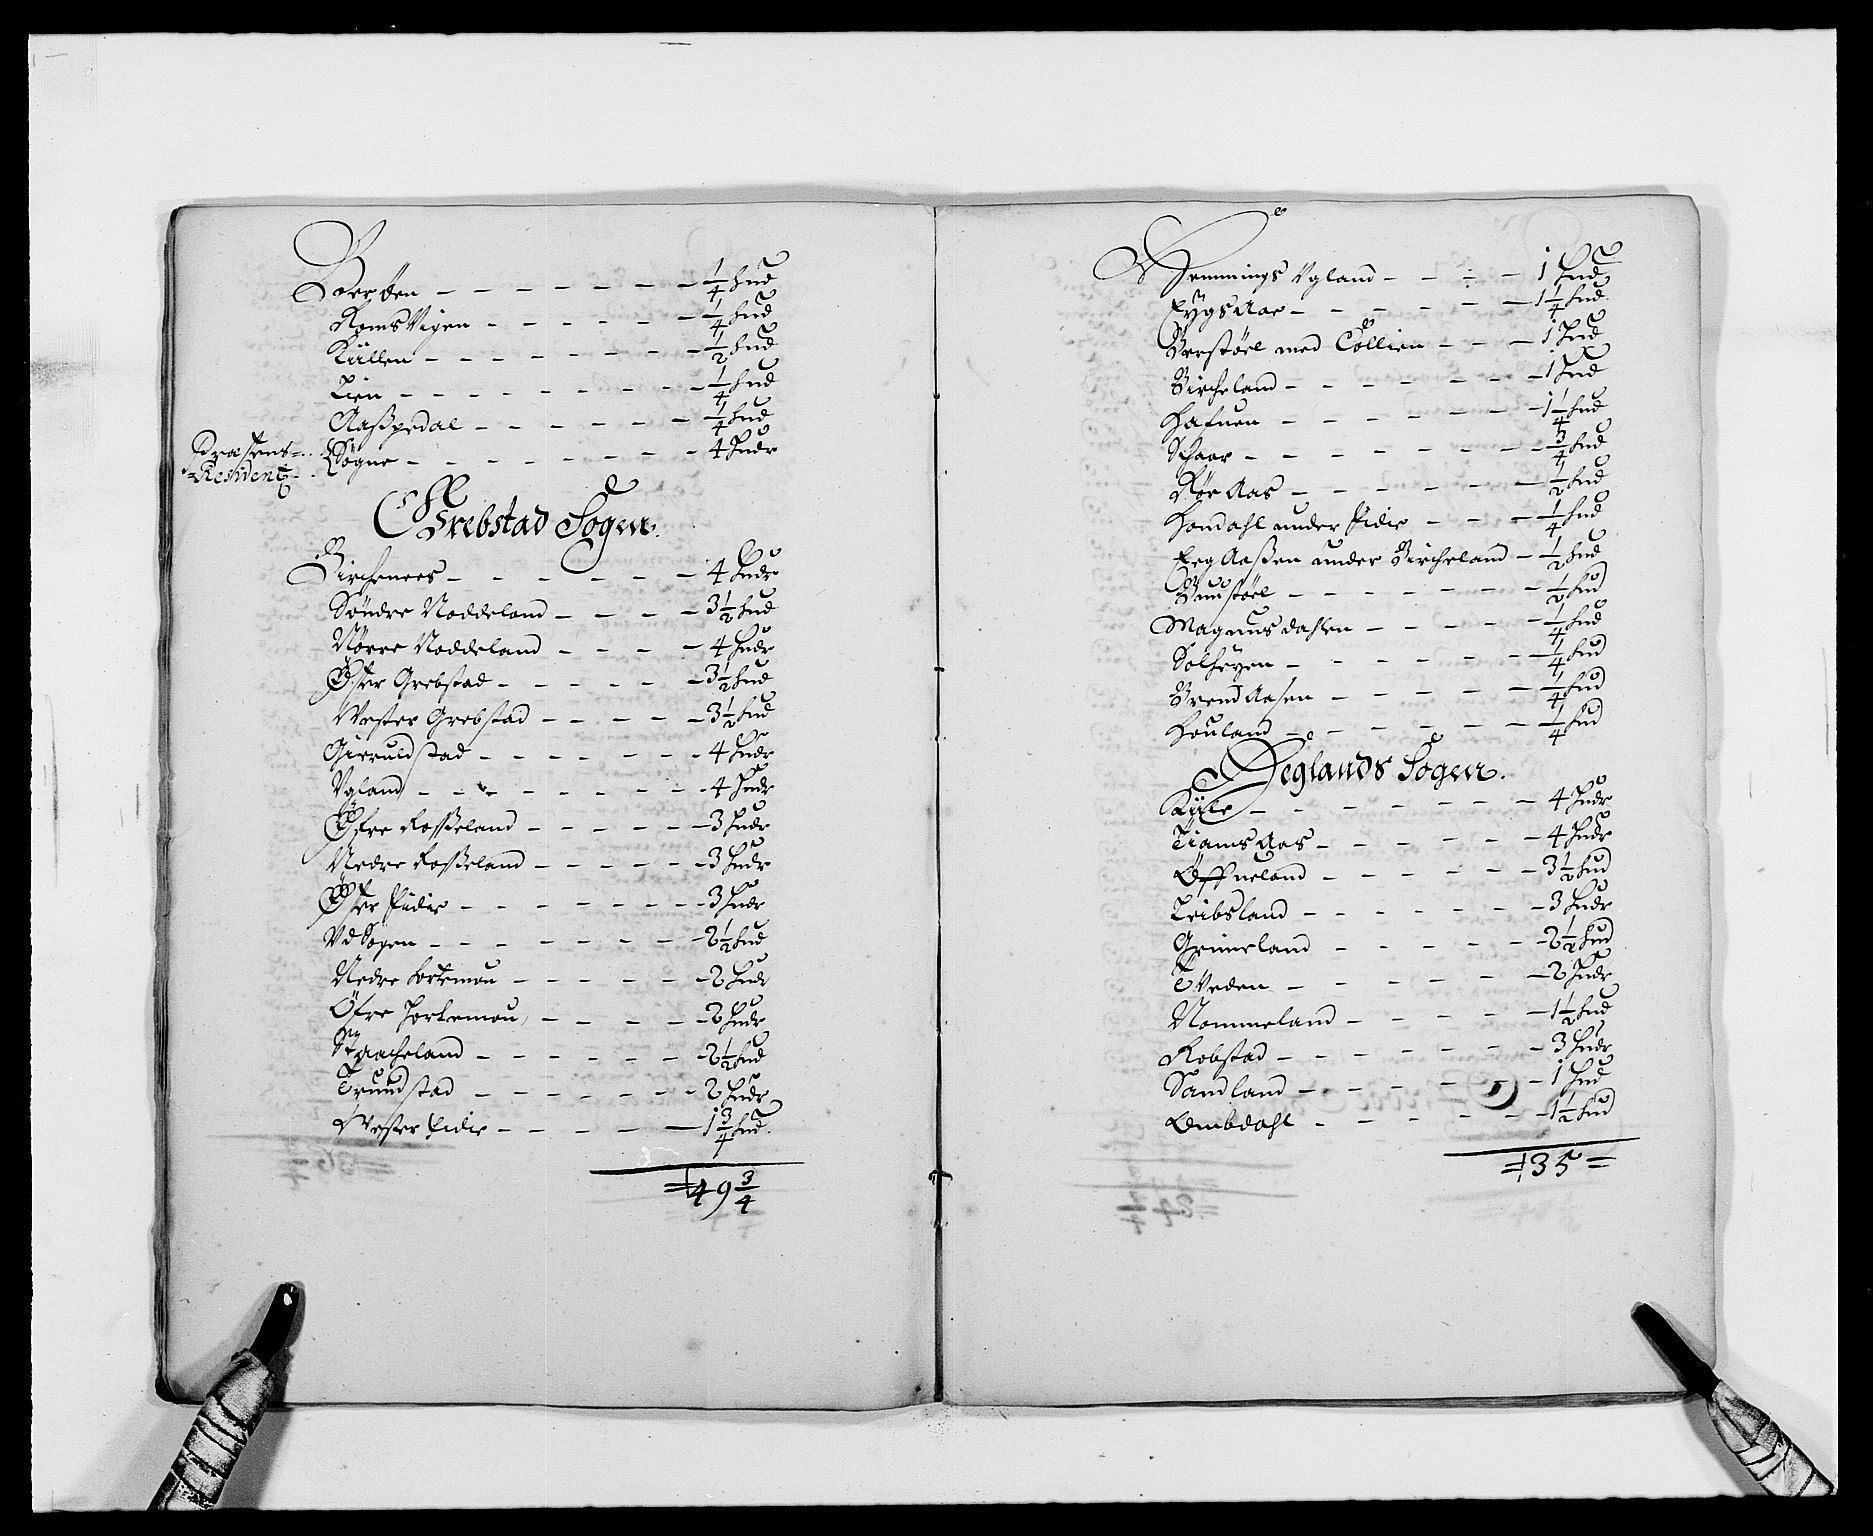 Boerøen - - - - - - - ¼ hud
RomsVigen - - - - - - ¼ hud
Küllen - - - - - - - ½ hud
Lien - - - - - - - - ¼ hud
Aaßpedal - - - - - - ¼ hud
Præstens Residentz Søgne - - - - - - - 4 Hudr
Grebstad Sogen.
Birchenees - - - - - - 4 Hudr
Søndre Noddeland - - - - 3½ hud
Nørre Noddeland - - - - 4 Hudr
Øster Grebstad - - - - - 3½ hud
Wester Grebstad - - - - 3½ hud
Gieruldstad - - - - - - 4 Hudr
Vgland - - - - - - - - 4 Hudr
Øfre Roßeland - - - - - 3 Hudr
Nedre Roßeland - - - - - 3 Hudr
Øster Eidie - - - - - - - 3 Hudr
VdSogen - - - - - - - 2½ hud
Nedre Hortemou - - - - - 2 Hudr
Øfre Hortemou - - - - - 2 Hudr
Straacheland - - - - - - 2½ hud
Trundstad - - - - - - 2 Hudr
Wester Eidie - - - - - 1¾ hud.
=149¾
Hemmings Vgland - - - - 1 Hud
Eygs Aae - - - - - - 1¼ hud
Berstøel med Collien - - - 1 Hud
Bircheland - - - - - - - 1 Hud
Hafuen - - - - - - - 1¼ hud
Schaar - - - - - - - - ¾ hud
Røe Aas - - - - - - - ½ hud
Homdahl under Eidie - - - ¼ hud
Eeg Aaßen under Bircheland - ½ hud
Buustøel - - - - - - - ½ hud
Magnusdahlen - - - - - ¼ hud
Solhøyen - - - - - - - ¼ hud
Brend Aasen - - - - - - ¼ hud
Houland - - - - - - - ¼ hud
Øeglands Sogen.
Kyle - - - - - - - - 4 Hudr
Tiams Aas - - - - - - 4 Hudr
Øffueland - - - - - - 3½ hud
Leibsland - - - - - - - 3 Hudr
Grimeland - - - - - - 2½ hud
Tveden - - - - - - - 2 Hudr
Nommeland - - - - - - 1½ hud
Robstad - - - - - - - 3 Hudr
Sandland - - - - - - - 1 Hud
Lembdahl - - - - - - 1½ hud
=135=